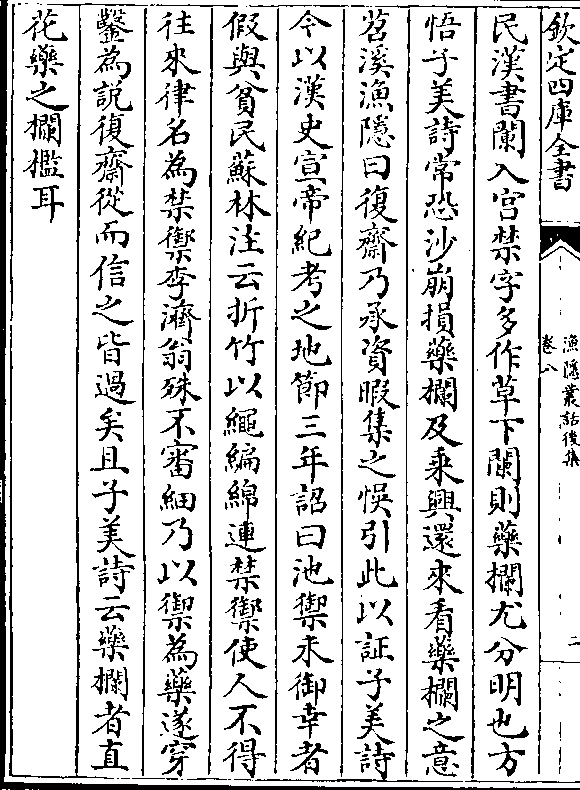 欽定四庫全書
漁隱叢話後集
卷八
二
民漢書闌入宫禁字多作草下闌則藥欄尤分明也方
悟子美詩常恐沙崩損藥欄及乘興還來看藥欄之意
苕溪漁隱曰復齋乃承資暇集之悞引此以証子美詩
今以漢史宣帝紀考之地節三年詔曰池籞未御幸者
假與貧民蘇林注云折竹以繩編綿連禁籞使人不得
往來律名為禁籞李濟翁殊不審細乃以籞為藥遂穿
鑿為説復齋從而信之皆過矣且子美詩云藥欄者直
花藥之欄檻耳